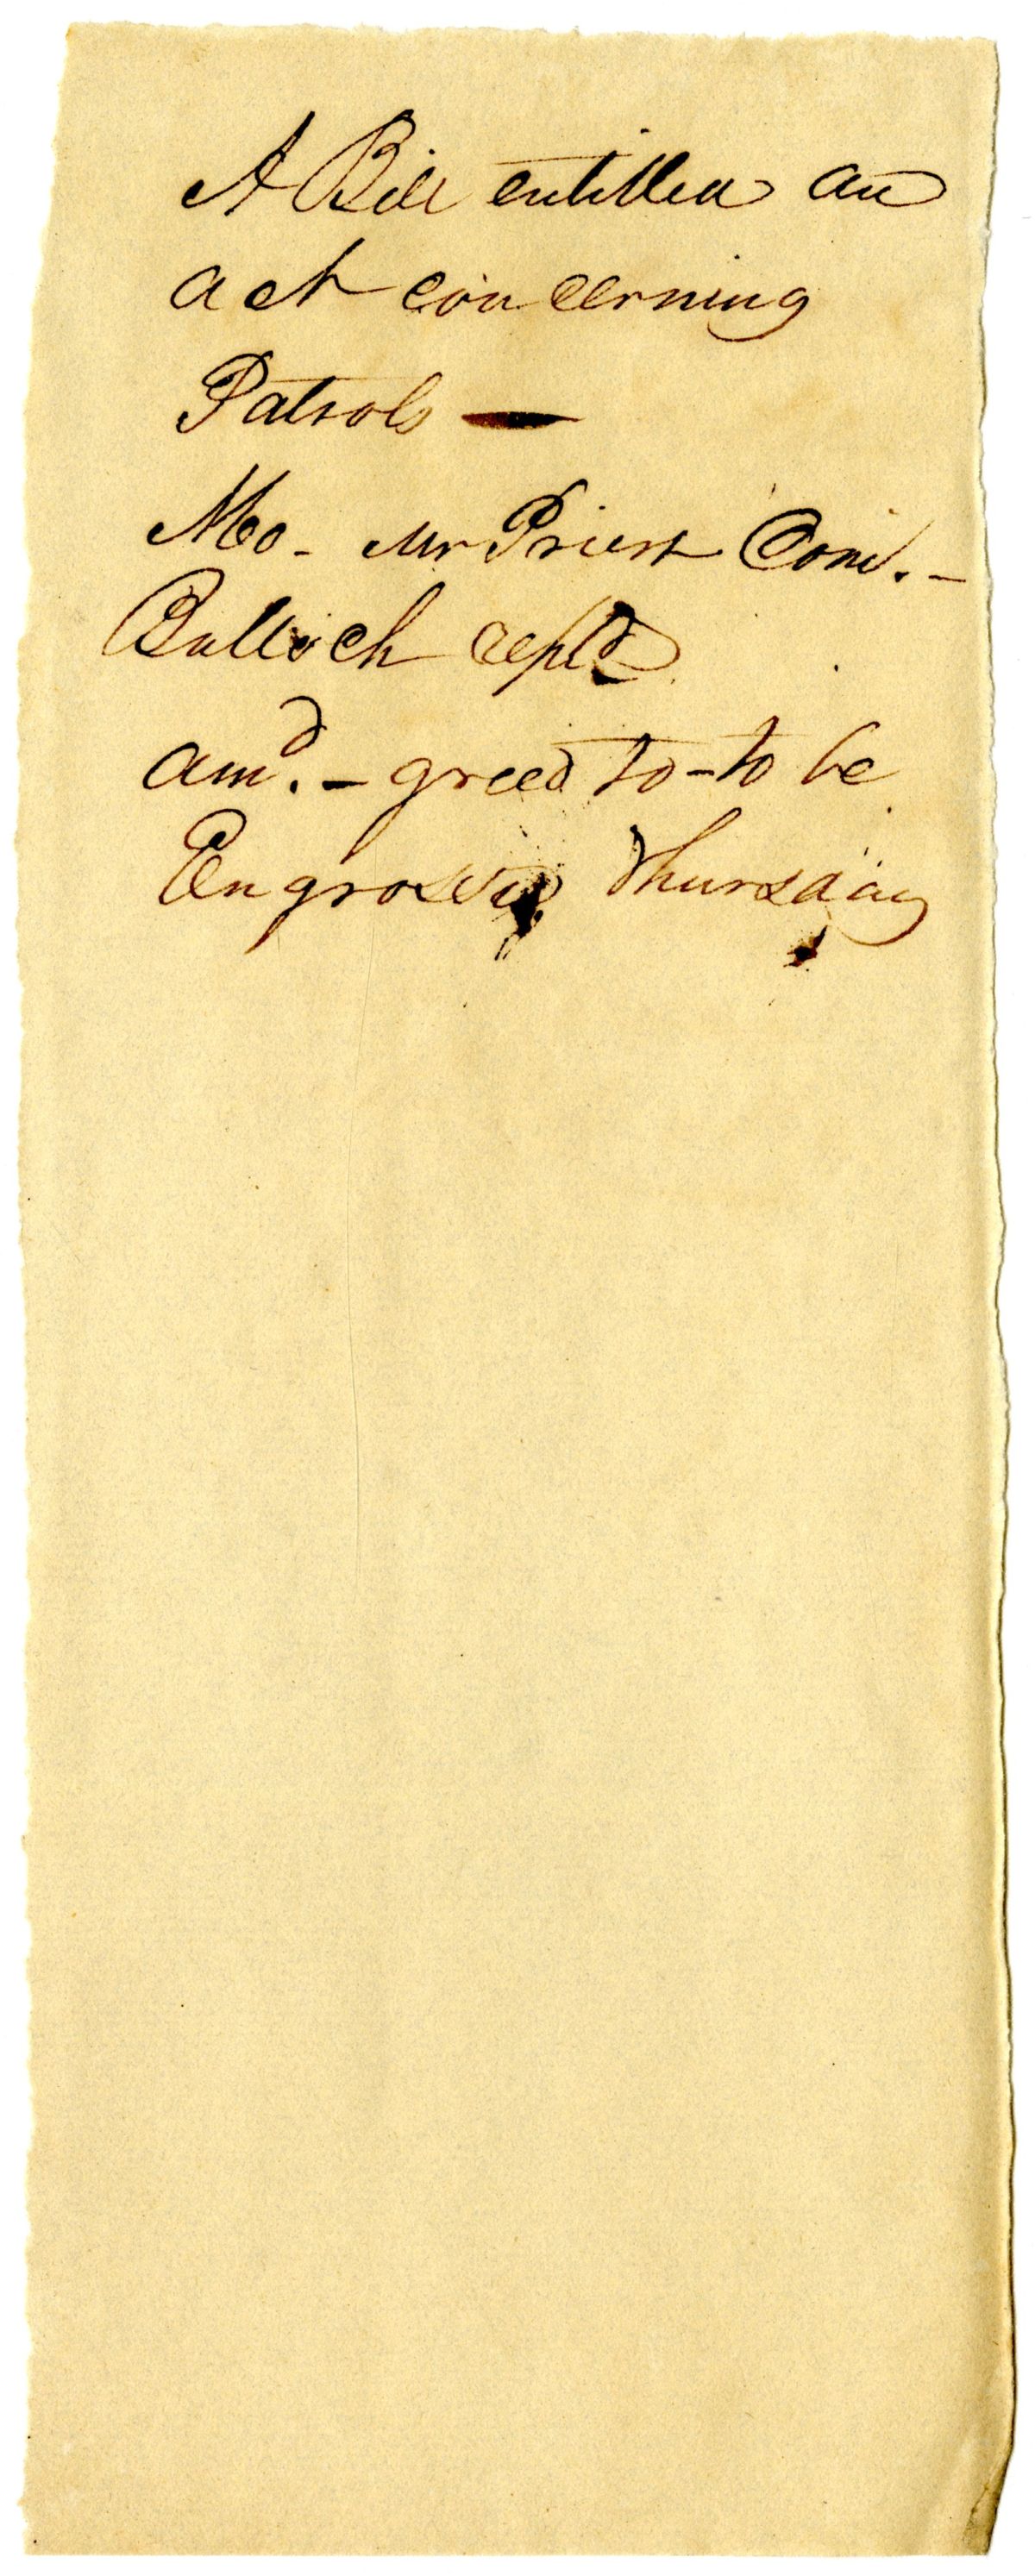 A Bill entitled an
act concerning
Patrols —
Mo - Mr Priest Com. -
Bulloch reptd
amd. - greed to - to be
Engrossed Thursday